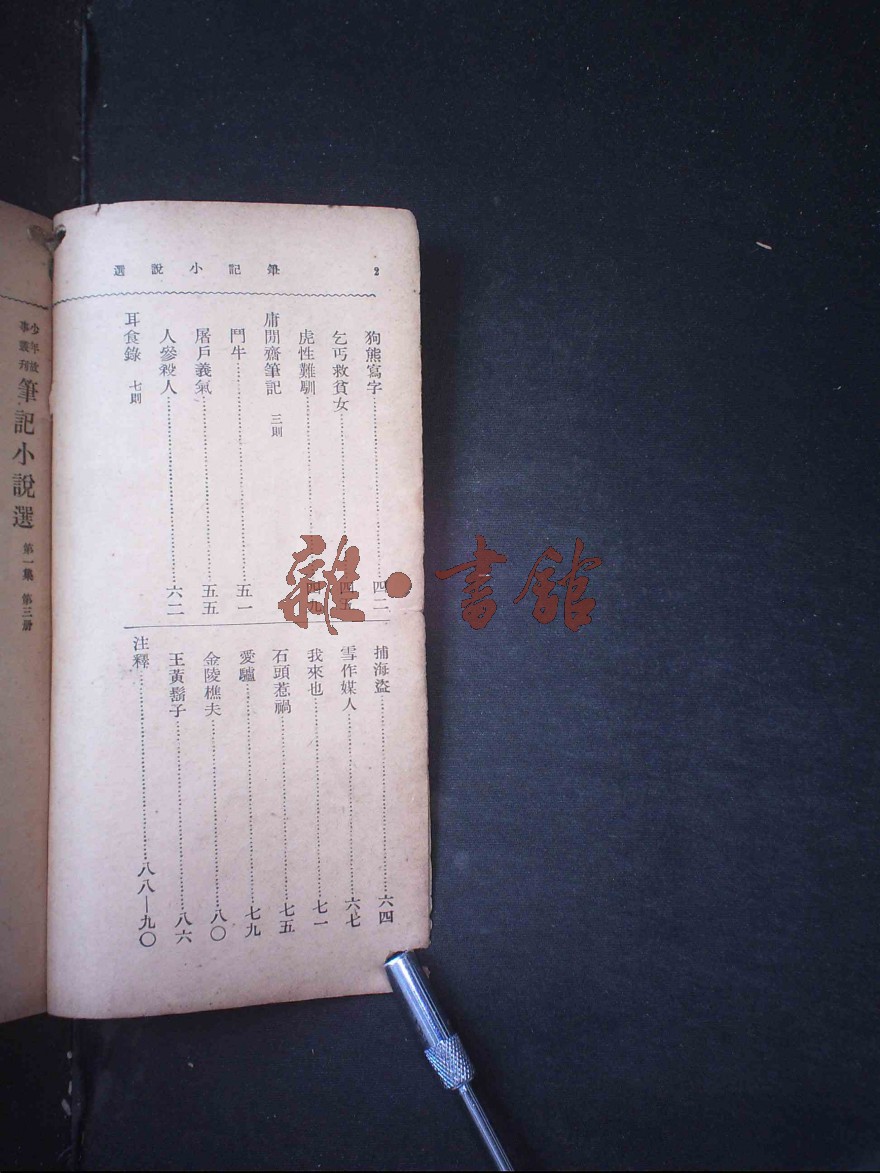 2
筆記小說選
狗熊寫字⋯⋯四二
乞丐救貧女⋯⋯四五
虎性難馴⋯⋯四九
庸閒齋筆記 三則
鬥牛⋯⋯五一
屠戶義氣⋯⋯五五
人參殺人⋯⋯六二
耳食錄 七則
捕海盜⋯⋯六四
雪作媒人⋯⋯六七
我來也⋯⋯七一
石頭惹禍⋯⋯七五
愛驢⋯⋯七九
金陵樵夫⋯⋯八〇
王黃鬍子⋯⋯八六
注釋⋯⋯八八—九〇
少年故事叢刊
筆記小說選 第一集 第三冊
雜·書館